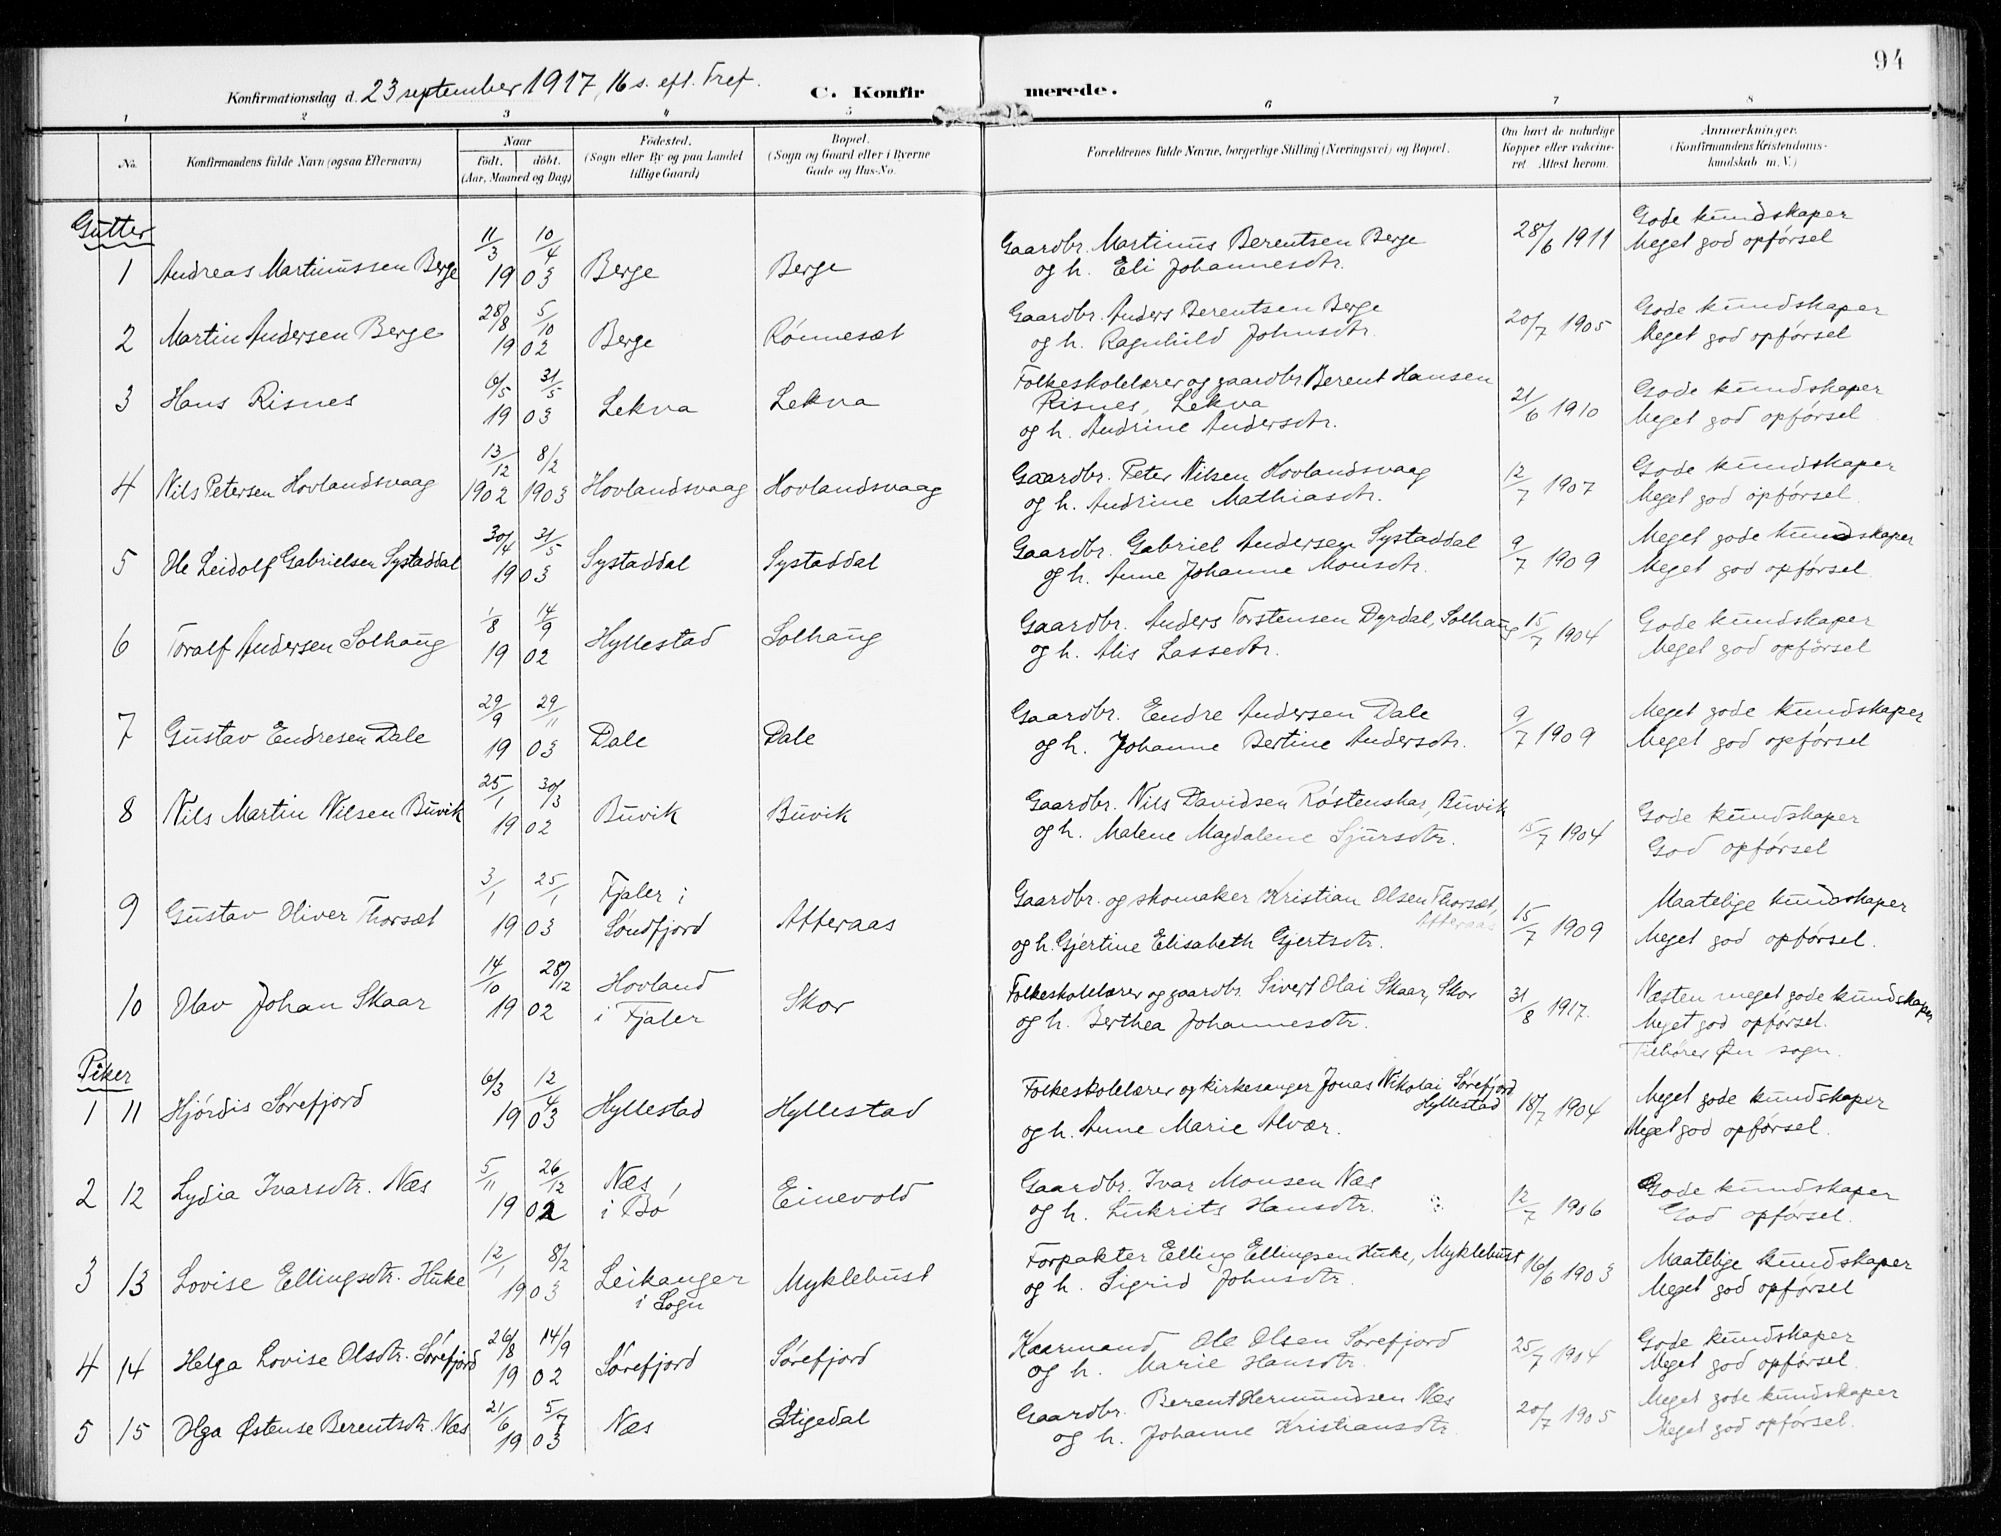 94
Konfirmationsdag d. 23 september 1917, 16 s. eft. Tref.
C. Konfirmerede.
1 2 3 4 5 6 7 8
No. Konfirmandens fulde Navn (ogsaa Efternavn) Naar født. døbt. (Aar, Maaned og Dag) Fødested. (Sogn eller By og paa Landet tillige Gaard) Bopæl. (Sogn og Gaard eller i Byerne Gade og Hus-No. Forældrenes fulde Navne, borgerlige Stilling (Næringsvei) og Bopæl. Om havt de naturlige Kopper eller vakcineret Attest herom. Anmærkninger. (Konfirmandens Kristendomskundskab m. V.)
Gutter
1 Andreas Martinussen Berge 11/3 10/4 1903 Berge Berge Gaardbr. Martinus Berentsen Berge og h. Eli Johannesdtr. 28/6 1911 Gode kundskaper Meget god opførsel
2 Martin Andersen Berge 28/8 5/10 1902 Berge Rønnesæt Gaardbr. Anders Berentsen Berge og h. Ragnhild Johnsdtr. 20/7 1905 Gode kundskaper Meget god opførsel
3 Hans Risnes 6/5 31/5 1903 Lekva Lekva Folkeskolelærer og gaardbr. Berent Hansen Risnes, Lekva og h. Andrine Andersdtr. 21/6 1910 Gode kundskaper Meget god opførsel
4 Nils Petersen Hovlandsvaag 13/12 1902 8/2 1903 Hovlandsvaag Hovlandsvaag Gaardbr. Peter Nilsen Hovlandsvaag og h. Andrine Mathiasdtr. 12/7 1907 Gode kundskaper Meget god opførsel
5 Ole Leidolf Gabrielsen Systaddal 30/4 31/5 1903 Systaddal Systaddal Gaardbr. Gabriel Andersen Systaddal og h. Anne Johanne Monsdtr. 9/7 1909 Meget gode kundskaper Meget god opførsel
6 Toralf Andersen Solhaug 1/8 14/9 1902 Hyllestad Solhaug Gaardbr. Anders Torstensen Dyrdal, Solhaug og h. Alis Lassedtr. 15/7 1904 Gode kundskaper Meget god opførsel
7 Gustav Endresen Dale 29/9 29/11 1903 Dale Dale Gaardbr. Endre Andersen Dale og h. Johanne Bertine Andersdtr. 9/7 1909 Meget gode kundskaper Meget god opførsel
8 Nils Martin Nilsen Buvik 25/1 30/3 1902 Buvik Buvik Gaardbr. Nils Davidsen Røstenshar, Buvik og h. Malene Magdalene Sjursdtr. 15/7 1904 Gode kundskaper God opførsel
9 Gustav Oliver Thorsæt 3/1 25/1 1903 Fjaler i Søndfjord Atteraas Gaardbr. og skomaker Kristian Olsen Thorsæt, Atteraas og h. Gjertine Elisabeth Gjertsdtr. 15/7 1909 Maatelige kundskaper Meget god opførsel.
10 Olav Johan Skaar 14/10 28/12 1902 Hovland i Fjaler Skor Folkeskolelærer og gaardbr. Sivert Olai Skaar, Skor og h. Berthea Johannesdtr. 31/8 1917. Næsten meget gode kundskaper Meget god opførsel. Tilhører Øn sogn.
Piker
1 11 Hjørdis Sørefjord 6/3 12/4 1903 Hyllestad Hyllestad Folkeskolelærer og kirkesanger Jonas Nikolai Sørefjord Hyllestad og h. Anne Marie Alvær. 18/7 1904 Meget gode kundskaper Meget god opførsel.
2 12 Lydia Ivarsdtr. Næs 5/11 26/12 1902 Næs i Bø Einevold Gaardbr. Ivar Monsen Næs og h. Lukrits Hansdtr. 12/7 1906 Gode kundskaper God opførsel.
3 13 Lovise Ellingsdtr. Huke 12/1 8/2 1903 Leikanger i Sogn Myklebust Forpakter Elling Ellingsen Huke, Myklebust og h. Sigrid Johnsdtr. 16/6 1903 Maatelige kundskaper Meget god opførsel
4 14 Helga Lovise Olsdtr. Sørefjord 26/8 14/9 1902 Sørefjord Sørefjord Kaarmand Ole Olsen Sørefjord og h. Marie Hansdtr. 25/7 1904 Gode kundskaper Meget god opførsel.
5 15 Olga Østense Berentsdtr. Næs 21/6 5/7 1903 Næs Stigedal Gaardbr. Berent Hermundsen Næs og h. Johanne Kristiansdtr. 20/7 1905 Meget gode kundskaper Meget god opførsel.